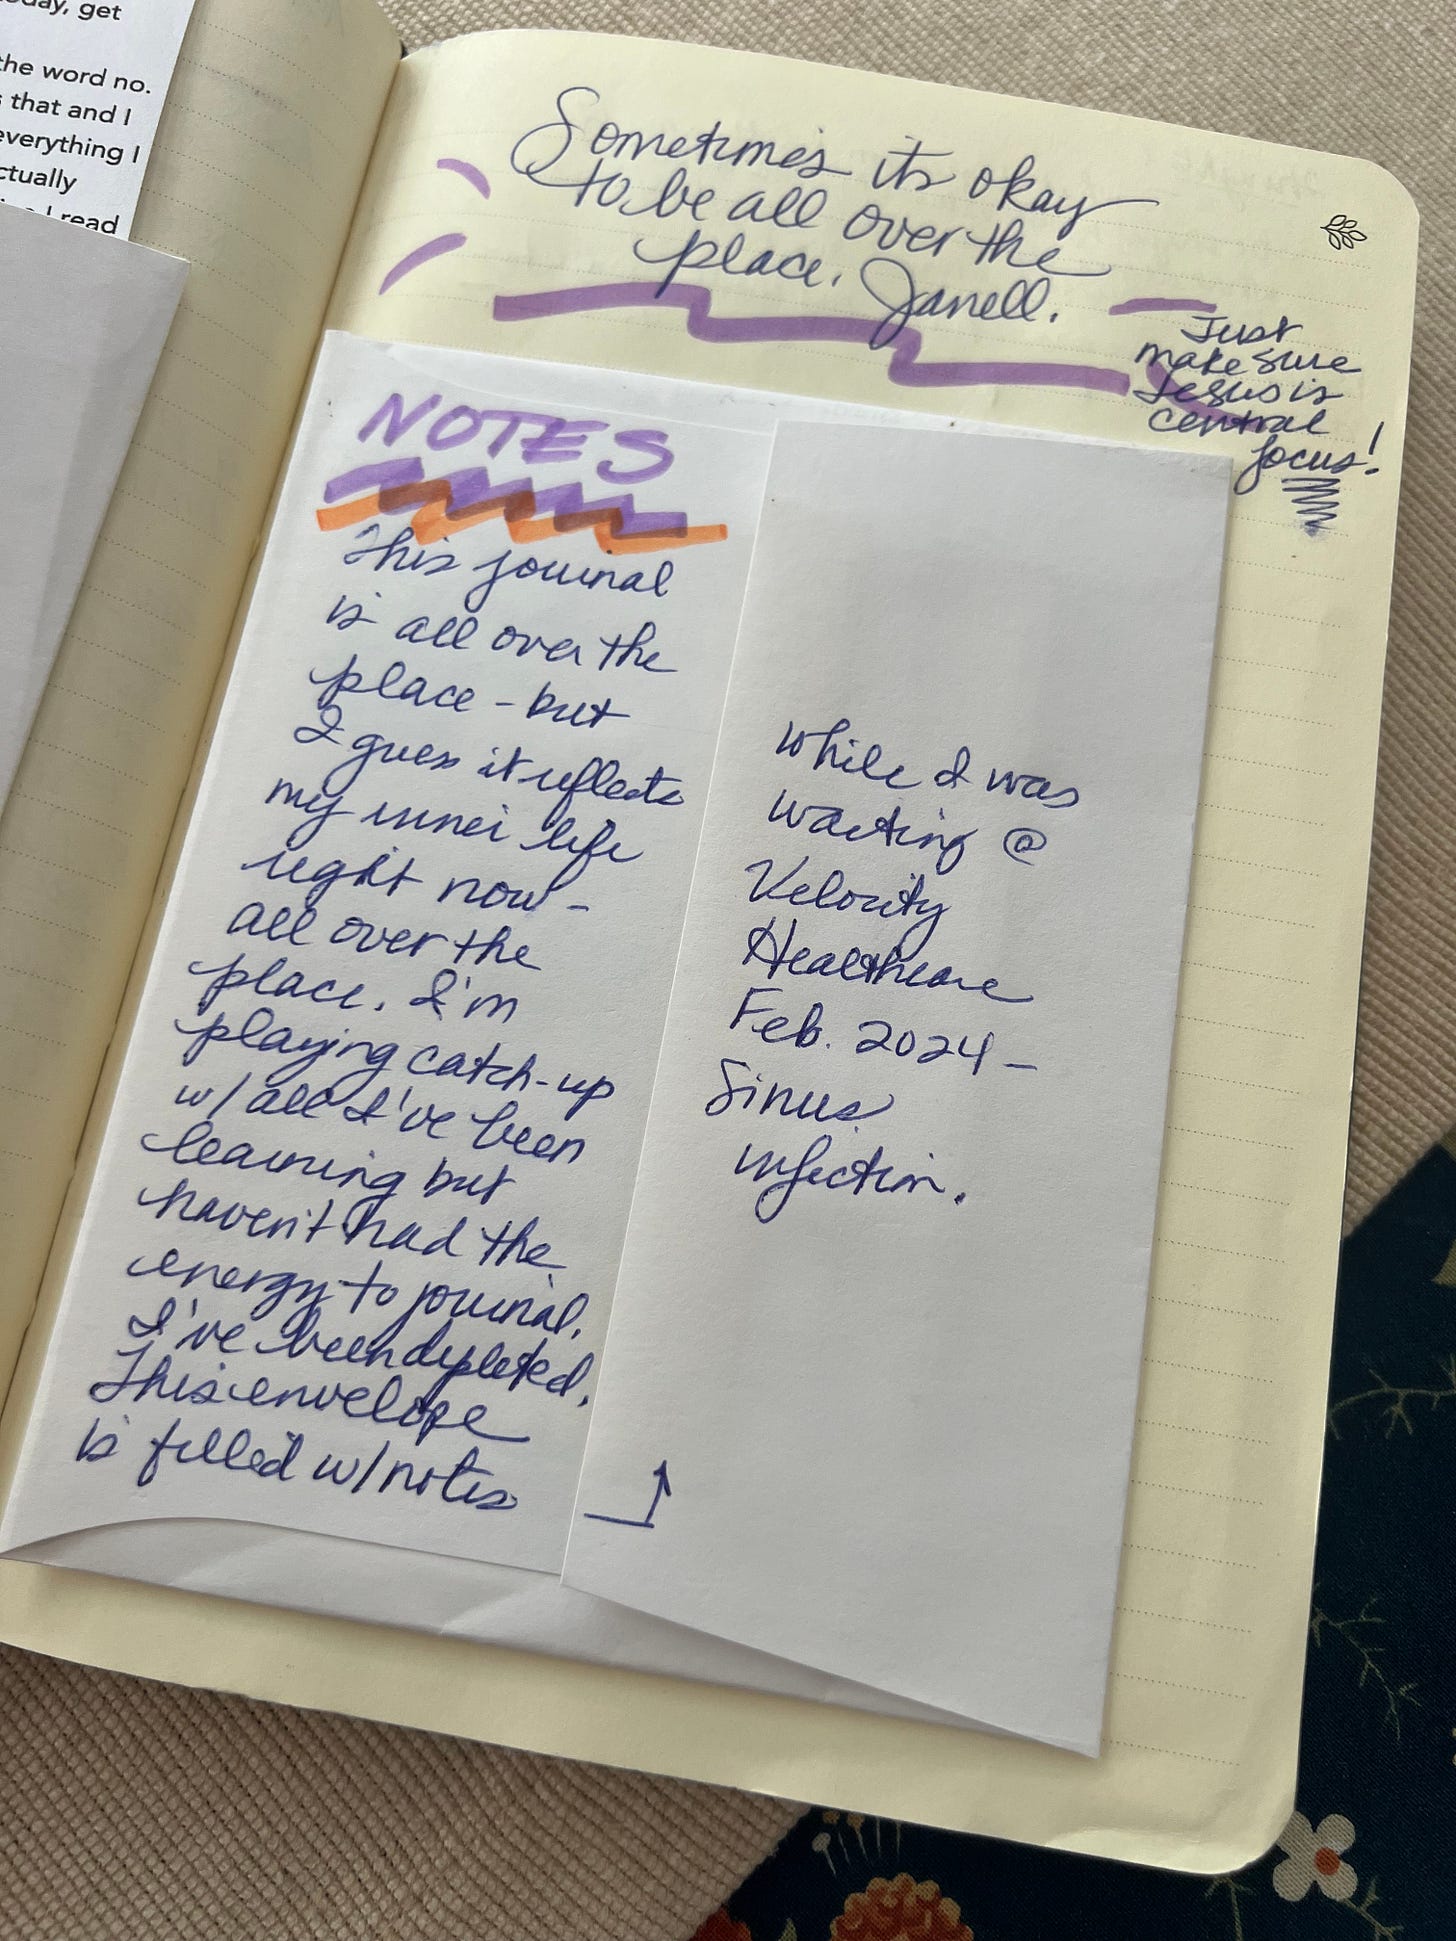 get
the word no.
that and I
everything I
ctually
I read
Sometimes its okay
to be all over the
place. Janell.
Just
make sure
Jesus is
central
focus!
NOTES
This journal
is all over the
place - but
I guess it reflects
my inner life
right now -
all over the
place. I'm
playing catch-up
w/ all I've been
learning but
haven't had the
energy to journal.
I've been depleted.
This envelope
is filled w/ notes
while I was
waiting @
Velocity
Healthcare
Feb. 2024 -
Sinus
infection.